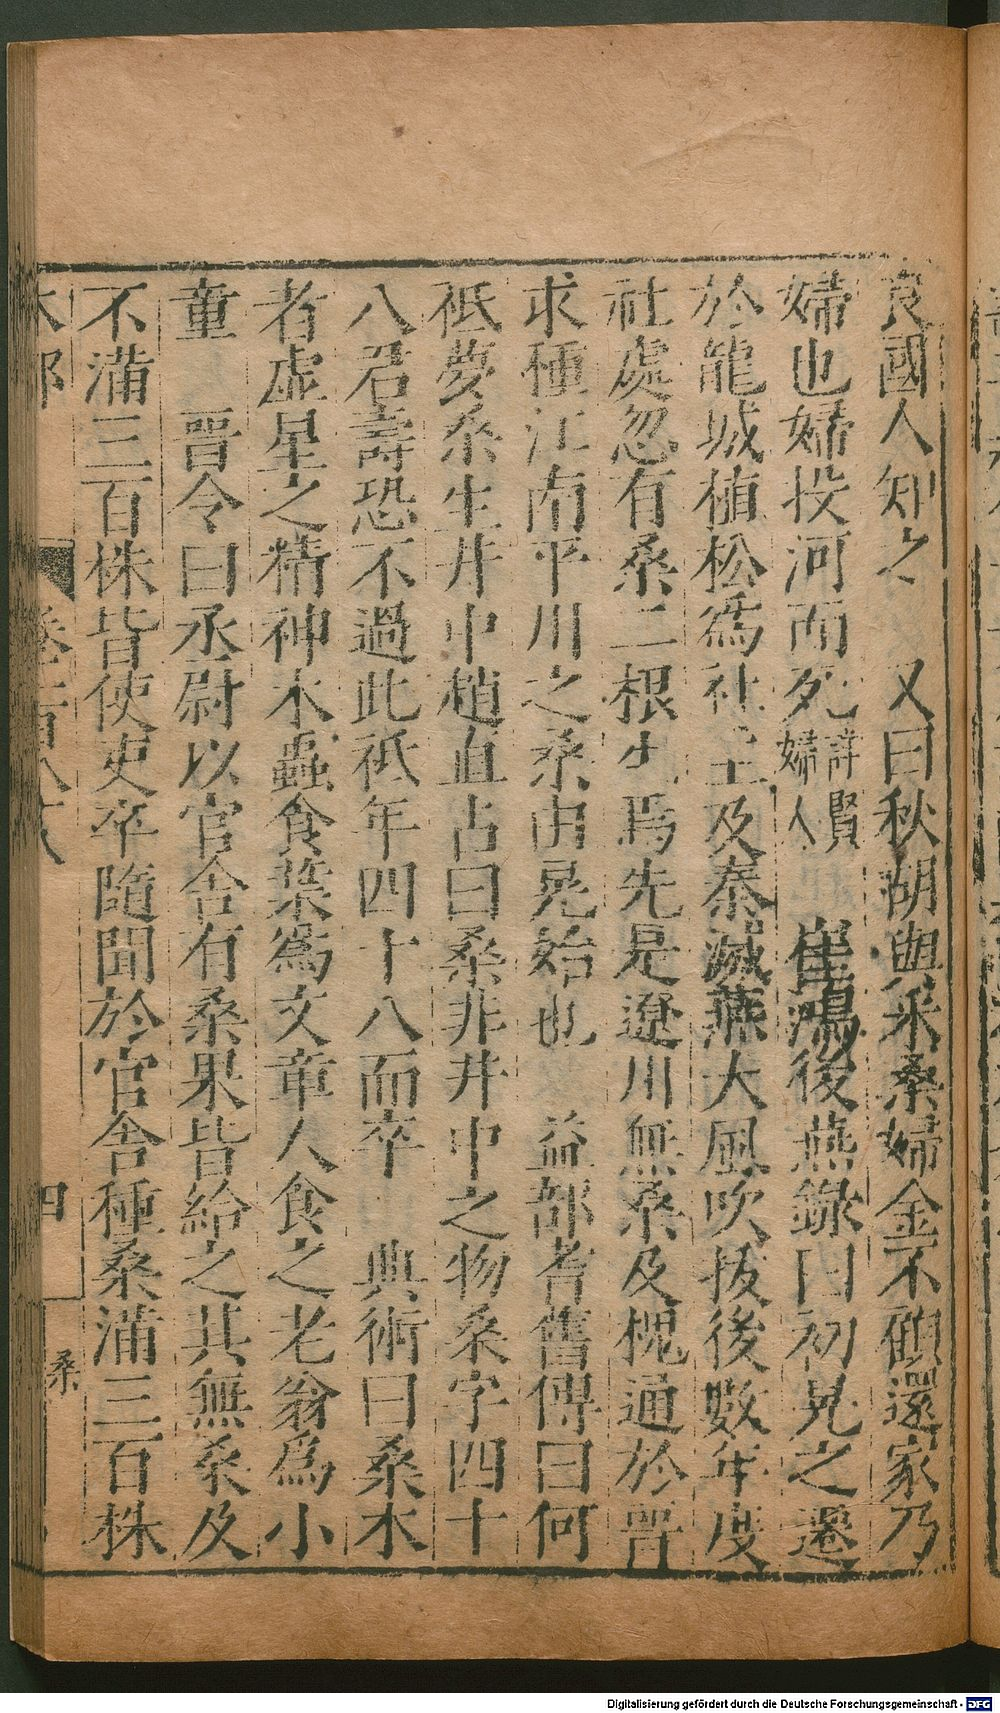 良國人知之　又曰秋胡與采桑婦金不顧還家乃
婦也婦投河而死詳賢婦人　崔鴻後燕錄曰初晃之遷
於龍城植松爲社主及秦滅燕大風吹拔後數年度
社處忽有桑二根生焉先是遼川無桑及槐通於晉
求種江南平川之桑由晃始也　益部耆舊傳曰何
祗夢桑生井中趙直占曰桑非井中之物桑字四十
八君壽恐不過此祗年四十八而卒　典術曰桑木
者虛星之精神木蟲食葉爲文章人食之老翁爲小
童　晉令曰丞尉以官舍有桑果皆給之其無桑及
不滿三百株皆使吏卒隨閒於官舍種桑滿三百株
木部　卷一百八十八　四　桑
Digitalisierung gefördert durch die Deutsche Forschungsgemeinschaft - DFG